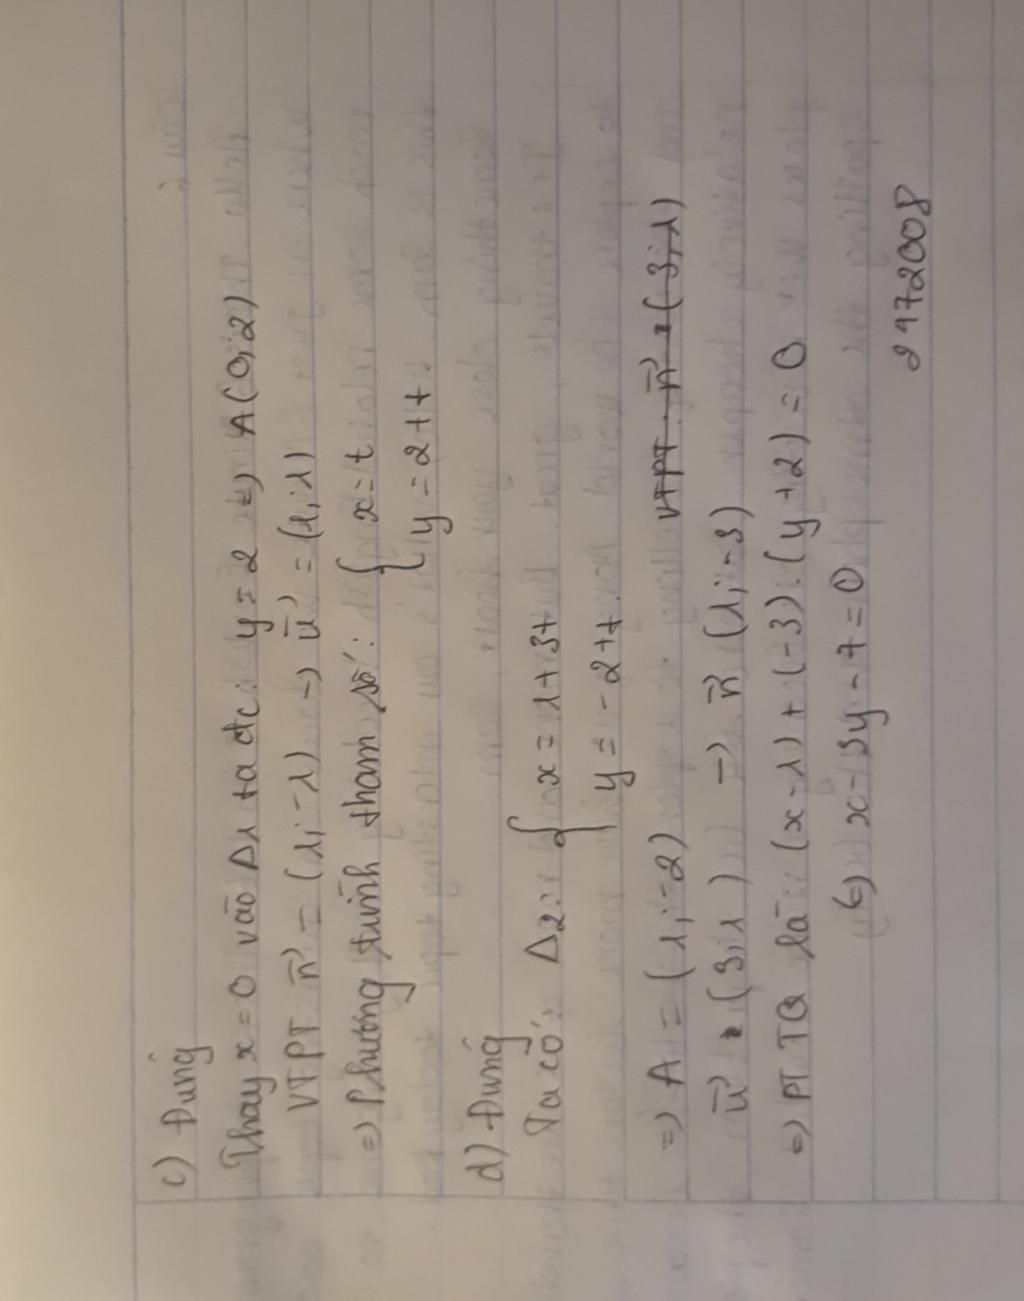 c) Đúng
Thay x = 0 vào Δ1 ta đc: y = 2 => A(0;2)
VTPT n⃗ = (1; -1) → u⃗ = (1;1)
=> Phương trình tham số: { x = t
y = 2 + t
d) Đúng
Ta có: Δ2: { x = 1 + 3t
y = -2 + t.
=> A = (1; -2) VTPT: n⃗ = (3;1)
u⃗ = (3;1) → n⃗ (1; -3)
=> PT TQ là: (x - 1) + (-3).(y + 2) = 0
(=) x - 3y - 7 = 0
2972008